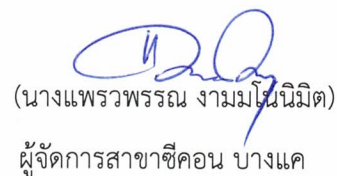 (นางแพรวพรรณ งามมโนนิมิต)
ผู้จัดการสาขาซีคอน บางแค